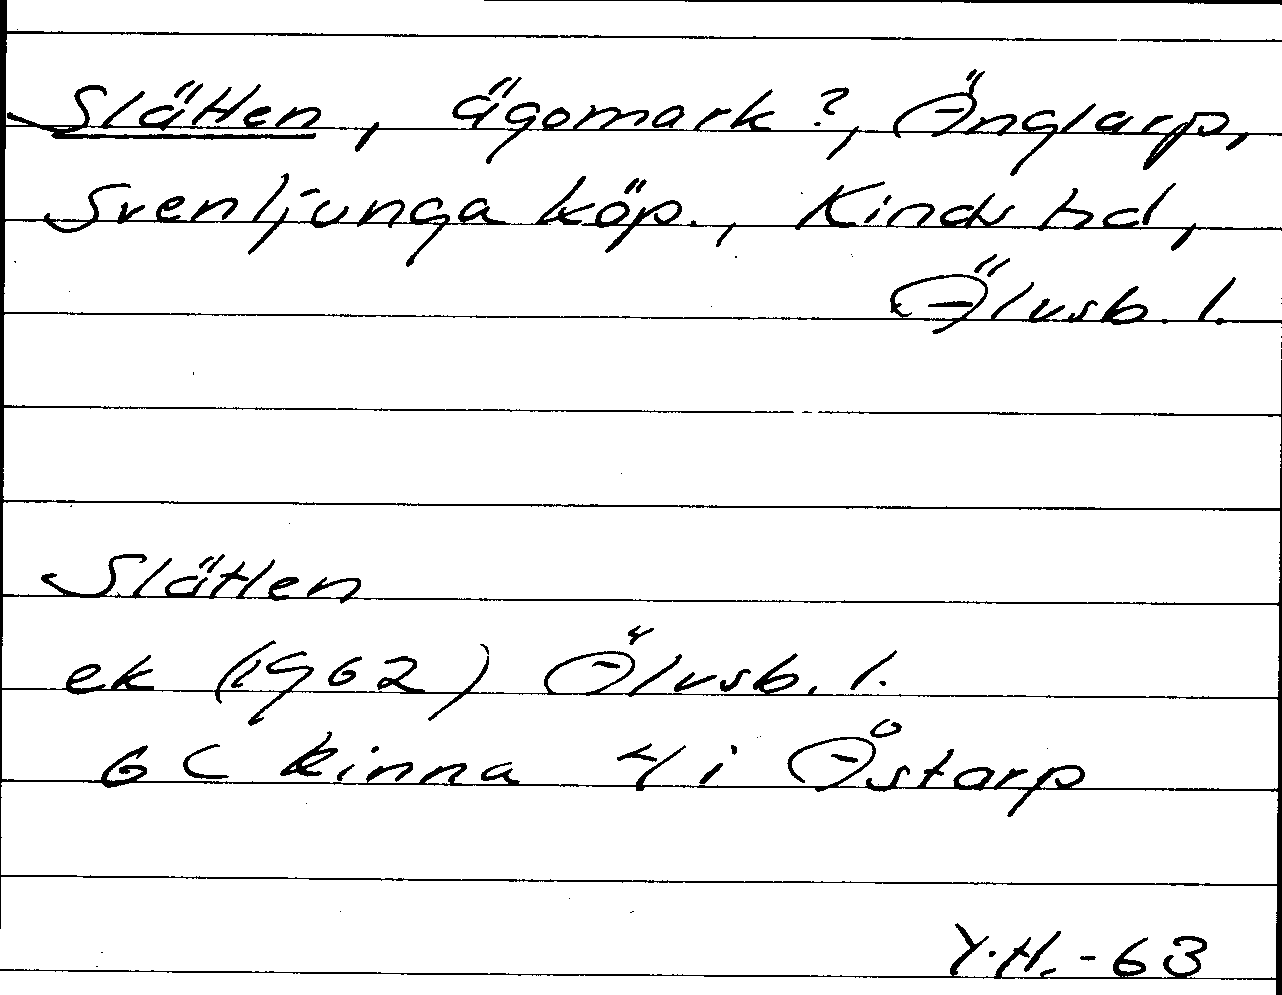 Slätten, ägomark?, Änglarp,
Svenljunga köp., Kinds hd,
Älvsb. l.
Slätten
ek (1962) Älvsb. l.
6 C Kinna 4 i Åstarp
Y.H. -63